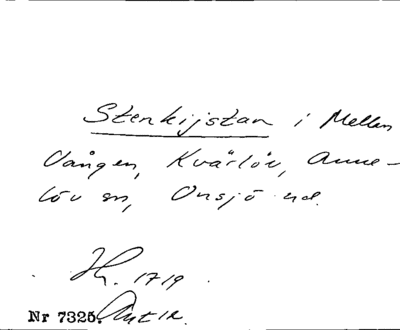 Stenkijstan i Mellan
Vången, Kvärlöv, Anne-
löv sn, Onsjö hd.
Jh. 1719
Nr 7325. Ant 12.